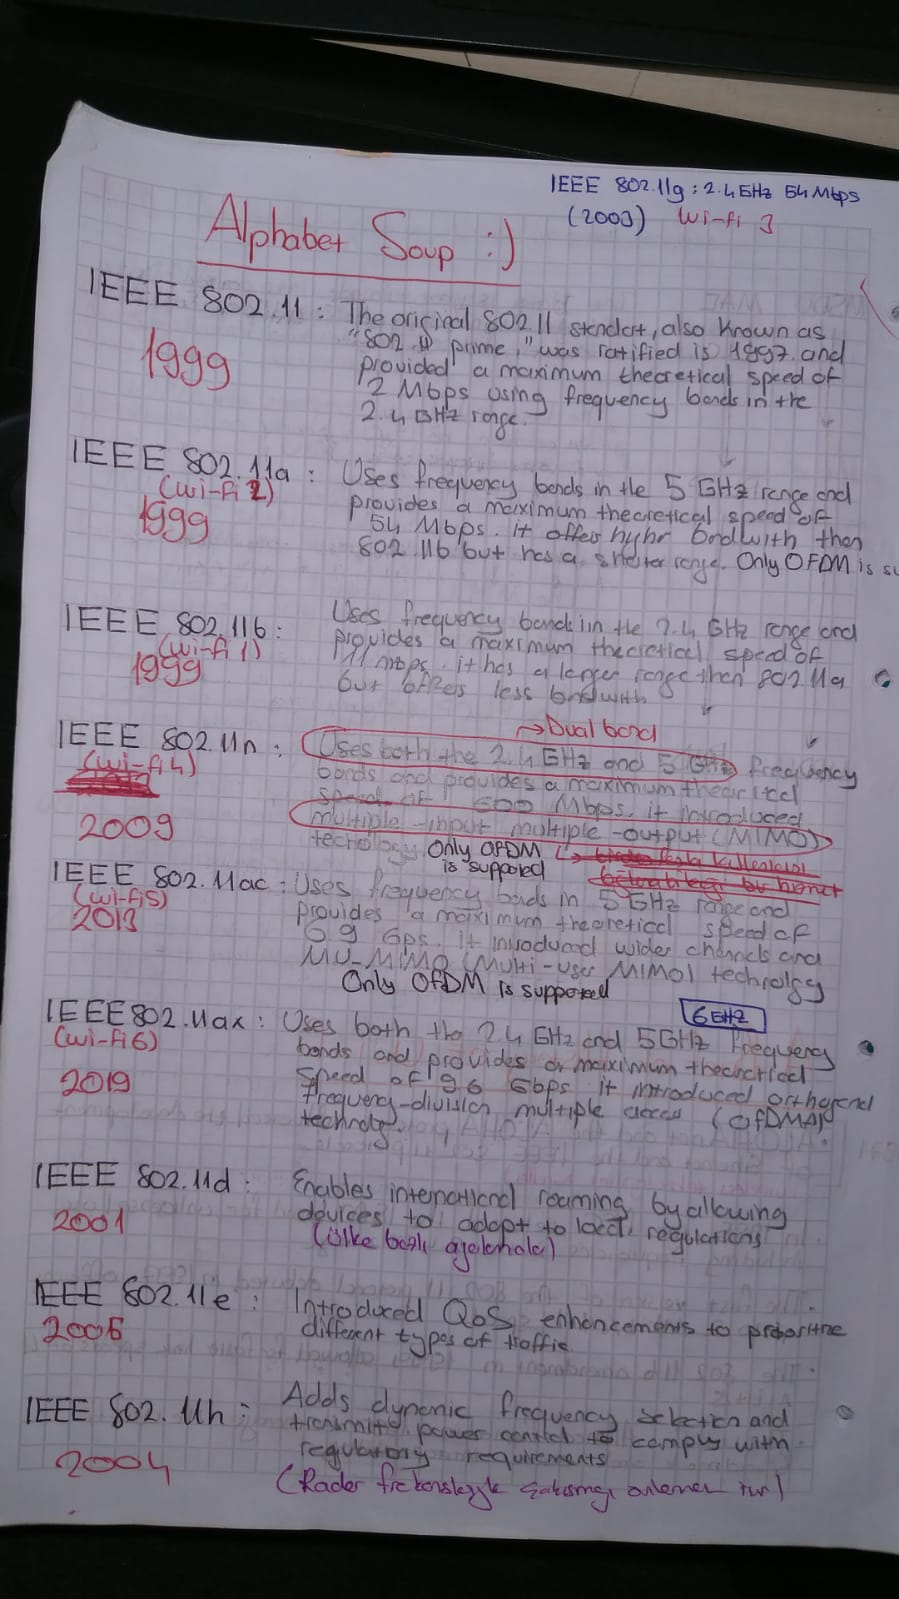 IEEE 802.11g : 2.4GHz 54Mbps
(2003) Wi-fi 3
Alphabet Soup :)
IEEE 802.11 : The original 802.11 standart, also known as
"802.11 prime," was ratified is 1997 and
1999
provided a maximum theoretical speed of
2 Mbps using frequency bands in the
2.4 GHz range.
IEEE 802.11a : Uses frequency bands in the 5 GHz range and
(Wi-fi 2)
provides a maximum theoretical speed of
1999
54 Mbps. it offers bandwith then
802.11b but has a shorter range. Only OFDM is su
IEEE 802.11b : Uses frequency bands in the 2.4 GHz range and
(Wi-fi 1)
provides a maximum theoretical speed of
1999
11 mbps. it has a larger range then 802.11a
but offers less bandwith
→Dual band
IEEE 802.11n : Uses both the 2.4 GHz and 5 GHz frequency
(Wi-fi 4)
bands and provides a maximum theoritcal
speed of 600 Mbps. it introduced
2009
multiple-input multiple-output (MIMO)
technology. Only OFDM
is supported
IEEE 802.11ac : Uses frequency bands in 5 GHz range and
(Wi-fi5)
2013
provides a maximum theoretical speed of
6.9 Gbps. it introduced wider channels and
MU-MIMO (Multi-user MIMO) technolgy
Only OFDM is supported
6GHz
IEEE802.11ax : Uses both the 2.4 GHz and 5GHz frequency
(Wi-fi6)
bands and provides a maximum theoretical
2019
speed of 9.6 Gbps it introduced orthogonal
frequency-division multiple access (OFDMA)
technology.
IEEE 802.11d : Enables international roaming by allowing
2001
devices to adapt to local regulations
(Ülke bazlı ayarlama)
IEEE 802.11e : Introduced QoS enhancements to
2005
different types of traffic
IEEE 802.11h : Adds dynamic frequency selection and
transmit power control to comply with
2004
regulatory requirements
(Radar